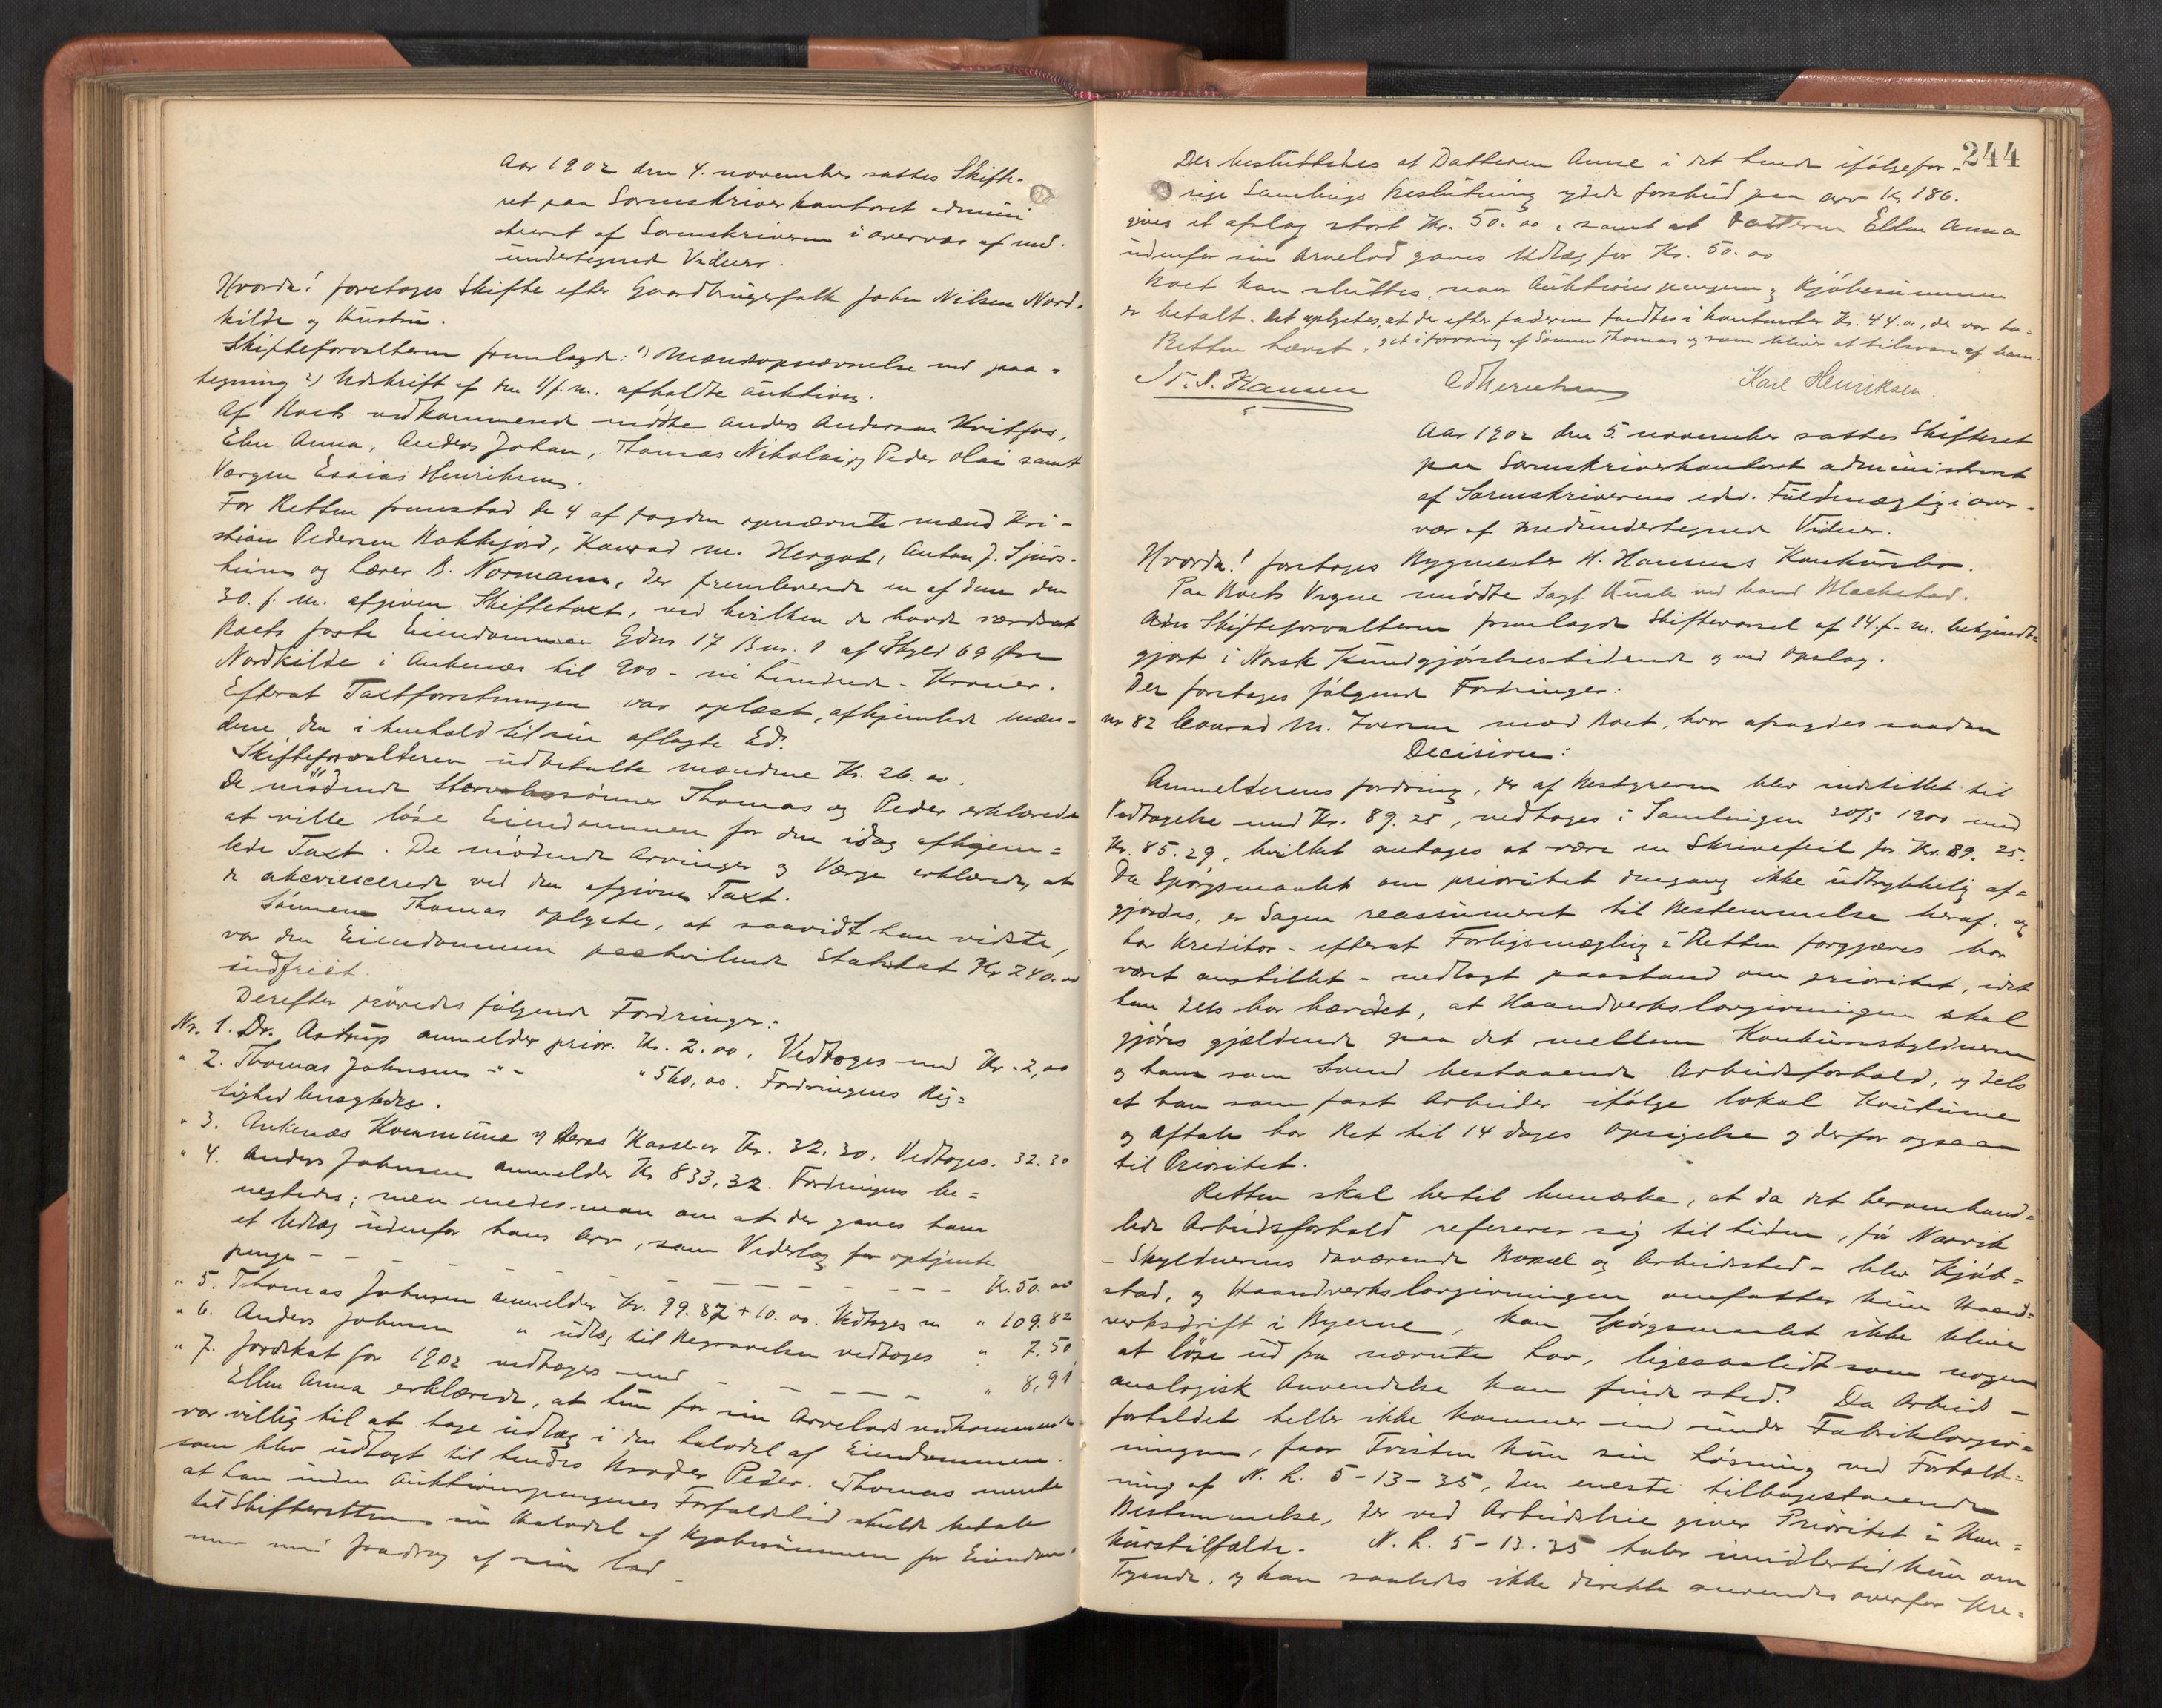 Aar 1902 den 4. november sattes Skifte-
ret paa Sorenskriverkontoret admini
streret af Sorenskriveren i overvær af med-
undertegnede Vidner.
Hvorda! foretoges Skifte efter Gaardbrugerfolk John Nilsen Nord-
kilde og Hustru.
Skifteforvalteren fremlagde: 1) Mændsopnævnelse med paa-
tegning 2) Udskrift af den 1/f.m. afholdte auktion.
Af Boets vedkommende mødte Anders Andersen Kvitfors,
Elen Anna, Anders Johan, Thomas Nikolai og Peder Olai samt
Værgen Esaias Henriksen.
For Retten fremstod de 4 af Fogden opnævnte mænd Kri-
stian Pedersen Bakkejord, Konrad M. Hergot, Anton J. Sjurs-
heim og Lærer B. Normann, der fremleverede en af dem den
30. f. m. afgiven Skiftetaxt, ved hvilken de havde værdsat
Boets faste Eiendommen Gdns 17 Bns. 1 af Skyld 69 Øre
Nordkilde i Ankenæs til 900 - ni hundrede - Kroner.
Efterat Taxtforretningen var oplæst, afhjemlede mæn-
dene den i henhold til sin aflagte Ed.
Skifteforvalteren udbetalte mændene Kr. 26.00.
De mødende Stervbosønner Thomas og Peder erklærede
at ville løse Eiendommen for den idag afhjem=
lede Taxt. De mødende Arvinger og Værge erklærede, at
de akcviescerede ved den afgivne Taxt.
Sønnen Thomas oplyste, at saavidt han vidste,
var den Eiendommen paahvilende Kr 240.00
indfriet.
Derefter prøvedes følgende Fordringer:
Nr. 1. Dr. Astrup anmelder prior. Kr. 2.00. Vedtoges med Kr. 2,00
" 2. Thomas Johnsen - " - " 560,00. Fordringens Rig=
tighed benægtedes.
" 3. Ankenæs Kommune v/ Herreds Kasserer Kr. 32.30. Vedtoges. 32.30
" 4. Anders Johnsen anmelder Kr 833,32. Fordringen be=
negtedes; men enedes man om at der gaves ham
et Udlæg udenfor hans Arv, som Vederlag for optjente
penge - - - - - - - - - - - Kr. 50.00
" 5. Thomas Johnsen anmelder Kr. 99.82 + 10.00. Vedtoges m " 109.82
" 6. Anders Johnsen " udlæg til Begravelsen vedtoges " 7.50
" 7. Jordskat for 1902 vedtoges med - - - - - " 8,91
Ellen Anna erklærede, at hun for sin Arvelods vedkommende
var villig til at tage udlæg i den halvdel af Eiendommen.
som blev udlagt til hendes Broder Peder. Thomas mente
at han inden Auktionspengenes Forfaldstid skulde betale
til Skifteretten sin Halvdel af Kjøbesummen for Eiendom
men med fradrag af sin lod
244
Der besluttedes at Datteren Anne i det hende ifølge for-
rige Samlings Beslutning ydede forskud paa arv Kr 186.
gives et afslag stort Kr. 50.00, samt at Datteren Ellen Anna
udenfor sin Arvelod gaves Udlæg for Kr. 50.00
Boet kan sluttes, naar Auktionspengene og Kjøbesummen
er betalt. Det oplystes, at der efter faderen fandtes i kontanter Kr. 44.00, der var ta=
Retten hævet. get i forvaring af Sønnen Thomas og som bliver at tilsvare af ham.
Hansen Karl Henriksen.
Aar 1902 den 5. november sattes Skifteret
paa Sorenskriverkontoret administreret
af Sorenskriverens edsv. Fuldmægtig i over-
vær af medundertegnede Vidner.
Hvorda! foretoges Bygmester H. Hansens Konkursbo.
Paa Boets Vegne mødte Sagf. ved hand Blackstad.
Adm Skifteforvalteren fremlagde Skiftevarsel af 14. f. m. bekjendt=
gjort i Norsk Kundgjørelsestidende og ved Opslag.
Der foretoges følgende Fordringer:
nr 82 Conrad M. Iversen mod Boet, hvor afsagdes saadan
Decision:
Anmelderens fordring, der af Bestyreren blev indstillet til
Vedtagelse med Kr. 89.25, vedtoges i Samlingen 30/5 1900 med
Kr. 85.29, hvilket antages at være en Skrivefeil for Kr. 89.25.
Da Spørgsmaalet om prioritet dengang ikke udtrykkelig af=
gjordes, er Sagen reassumeret til Bestemmelse heraf, og
har Kreditor - efterat Forligsmægling i Retten forgjæves har
været anstillet - nedlagt paastand om prioritet, idet
han dels har hævdet, at Haandverkslovgivningen skal
gjøres gjældende paa det mellem Konkursskyldneren
og ham som Svend bestaaende Arbeidsforhold, og dels
at han som fast Arbeider ifølge lokal Koutume
og Aftale har Ret til 14 dages Opsigelse og derfor ogsaa
til Prioritet.
Retten skal hertil bemærke, at da det heromhand=
lede Arbeidsforhold refererer sig til tiden, før Narvik
- Skyldnerens daværende Bopæl og Arbeidssted - blev Kjøb=
stad, og Haandverkslovgivningen omfatter kun Haand=
verksdrift i Byerne, kan Spørgsmaalet ikke blive
at løse ud fra nævnte Lov, ligesaalidt som nogen
analogisk Anvendelse kan finde sted. Da Arbeids-
forholdet heller ikke kommer ind under Fabriklovgiv=
ningen, faar Tvisten kun sin Løsning ved Fortolk=
ning af N. L. 5-13-35, den eneste tilbagestaaende
Bestemmelse, der ved Arbeidsleie giver Prioritet i Kon=
kurstilfælde. N. L. 5-13-35 taler imidlertid kun om
Tyende, og kan saaledes ikke direkte anvendes overfor Kre=